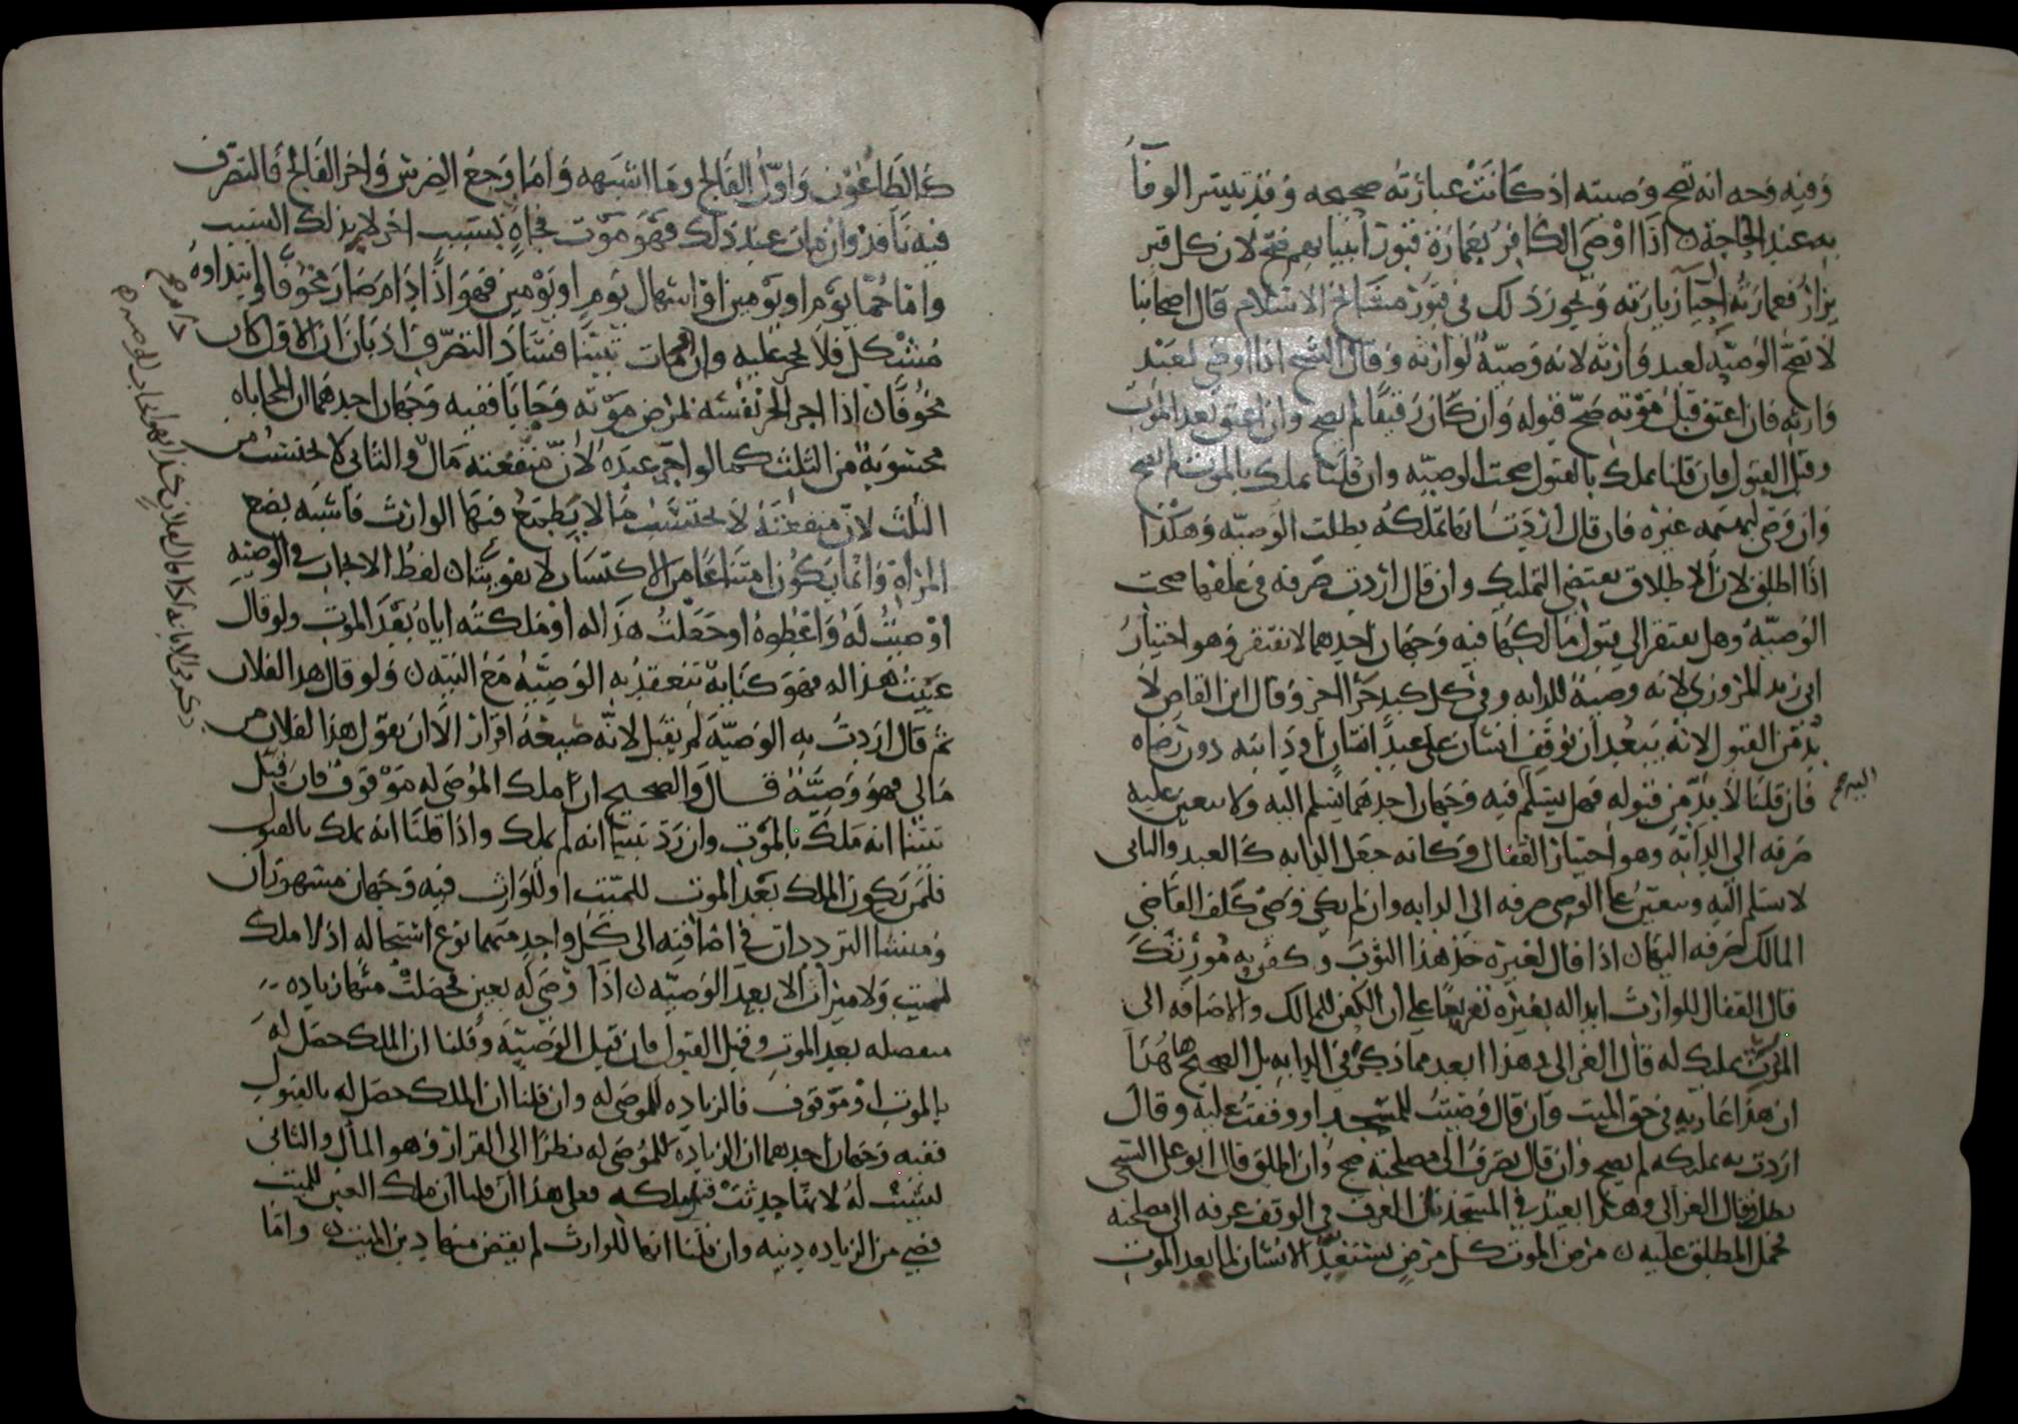 وفيه وجه انه تصح وصيته اذ كانت عبارته صحيحه وقد تيسر الوفاء
به عند الحاجة ن اذا اوصى الكافر بعمارة قبور انبيايهم صح لان كل قبر
يزار فعمارته احيا زيارته ويجوز ذلك في قبور مشايخ الاسلام قال اصحابنا
لا تصح الوصية لعبد وارثه لانه وصية لوارثه وقال الشيخ اذا اوصى لعبد
وارثه فان اعتق قبل موته صح قبوله وان كان رقيقا لم يصح وان اعتق بعد الموت
وقبل القبول فان قلنا يملك بالقبول صحت الوصيه وان قلنا يملك بالموت لم تصح
وان وصى لبهيمه غيره فان قال اردت تمليكه بطلت الوصيه وهكذا
اذا اطلق لان الاطلاق يقتضي التمليك وان قال اردت صرفه في علفها صحت
الوصية وهل يفتقر الى قبول مالكها فيه وجهان احدهما لا يفتقر وهو اختيار
ابي زيد المروزي لانه وصية للدابه وفي كل كبد حرا اجر وقال ابن القاص لا
بد من القبول لانه يبعد ان يوقف انسان على عبد انسان او دابته دون رضاه
فان قلنا لا بد من قبوله فهل يسلم فيه وجهان احدهما يسلم اليه ولا يتعين عليه
صرفه الى الدابة وهو اختيار القفال وكانه جعل الدابه كالعبد والثاني
لا يسلم اليه ويتعين على الوصي صرفه الى الدابه وان لم يكن وصي كلف القاضي
المالك صرفه اليها ن اذا قال لغيره خذ هذا الثوب وكفن به مورثك
قال القفال للوارث ابداله بغيره تفريعا على ان الكفن للمالك والاضافه الى
الميت تمليك له قال الغزالي وهذا ابعد مما ذكر في الدابه بل الصحيح هاهنا
ان هذا عاريه في حق الميت وان قال وصيت للمسجد او وقفت عليه وقال
اردت به تمليكه لم يصح وان قال يصرف الى مصلحته صح وان اطلق قال ابو علي السنجي
بطل وقال الغزالي وهذا ابعد في المسجد فان العرف في الوقف عرفه الى مصلحته
فحمل المطلق عليه ن مرض الموت كل مرض يستعد الانسان لما بعد الموت
كالطاعون واول الفالج وما اشبهه واما وجع الضرس واخر الفالج فالتصرف
فيه نافذ وان مات عند ذلك فهو موت فجاه بسبب اخر لا بذلك السبب
واما حمى يوم او يومين او اسهال يوم او يومين فهو اذا دام صار مخوفا وابتداوه
مشكل فلا يحجر عليه وان مات تبينا فساد التصرف اذ بان ان الاول كان
مخوفا ن اذا اجر الحر نفسه لمرض موته وحابا ففيه وجهان احدهما ان المحاباه
محسوبة من الثلث كما لو اجر عبده لان منفعته مال والثاني لا تحتسب من
الثلث لان منفعته لا تحتسب مالا يطمع فيها الوارث فاشبه بضع
المراة وانما يكون امتناعا من الاكتساب لا تفويتا ن لفظ الايجاب في الوصية
اوصيت له واعطوه او جعلت هذا له او ملكته اياه بعد الموت ولو قال
عينت هذا له فهو كناية تنعقد به الوصية مع النيه ن ولو قال هذا لفلان
ثم قال اردت به الوصية لم يقبل لانه صيغة اقرار الا ان يقول هذا لفلان من
مالي فهو وصية قال والصحيح ان ملك الموصى له موقوف فان قبل
تبينا انه ملك بالموت وان رد تبينا انه لم يملك واذا قلنا انه يملك بالقبول
فلمن يكون الملك بعد الموت للميت او للوارث فيه وجهان مشهوران
ومنشا التردد ان في اضافته الى كل واحد منهما نوع استحاله اذ لا ملك
لميت ولا ميراث الا بعد الوصيه ن اذا وصى له بعين فحصلت منها زياده
منفصله بعد الموت وقبل القبول فان قبل الوصية وقلنا ان الملك حصل له
بالموت او موقوف فالزياده للموصى له وان قلنا ان الملك حصل له بالقبول
ففيه وجهان احدهما ان الزيادة للموصى له نظرا الى القرار وهو المال والثاني
ليست له لانها حدثت قبل ملكه فعلى هذا ان قلنا ان ملك العين للميت
قضي من الزياده دينه وان قلنا انها للوارث لم يقض منها دين الميت ن واما